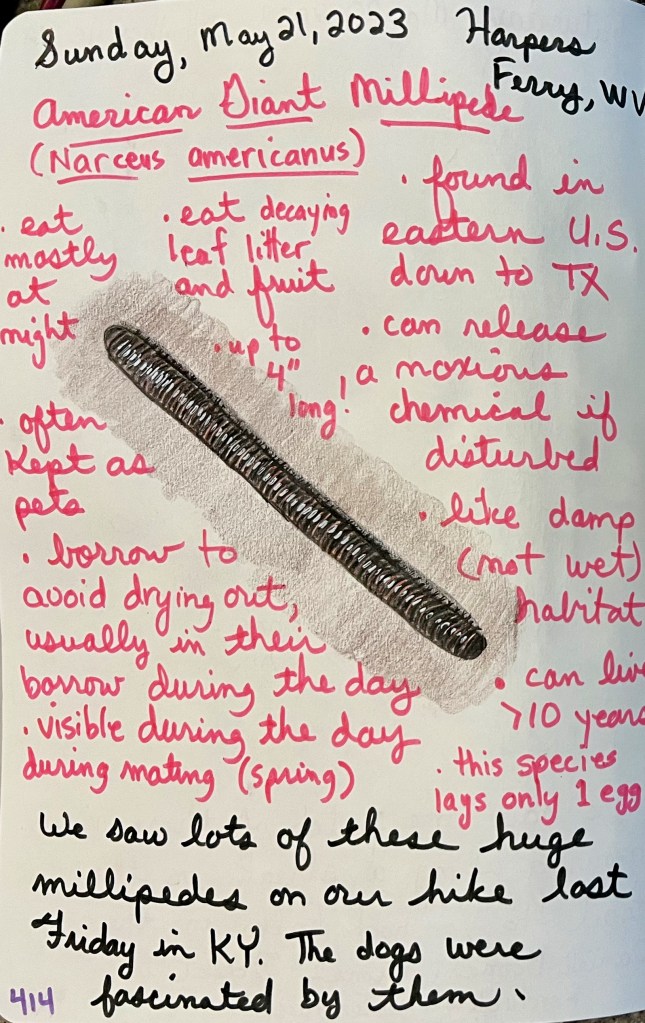 Sunday, May 21, 2023 Harpers
Ferry, WV
American Giant Millipede
(Narceus americanus)
· eat
mostly
at
night
· eat decaying
leaf litter
and fruit
· up to
4"
long!
· found in
eastern U.S.
down to TX
· can release
a noxious
chemical if
disturbed
· often
kept as
pets
· like damp
(not wet)
habitat
· borrow to
avoid drying out,
usually in their
borrow during the day
· visible during the day
during mating (spring)
· can live
>10 years
· this species
lays only 1 egg
We saw lots of these huge
millipedes on our hike last
Friday in KY. The dogs were
fascinated by them.
414